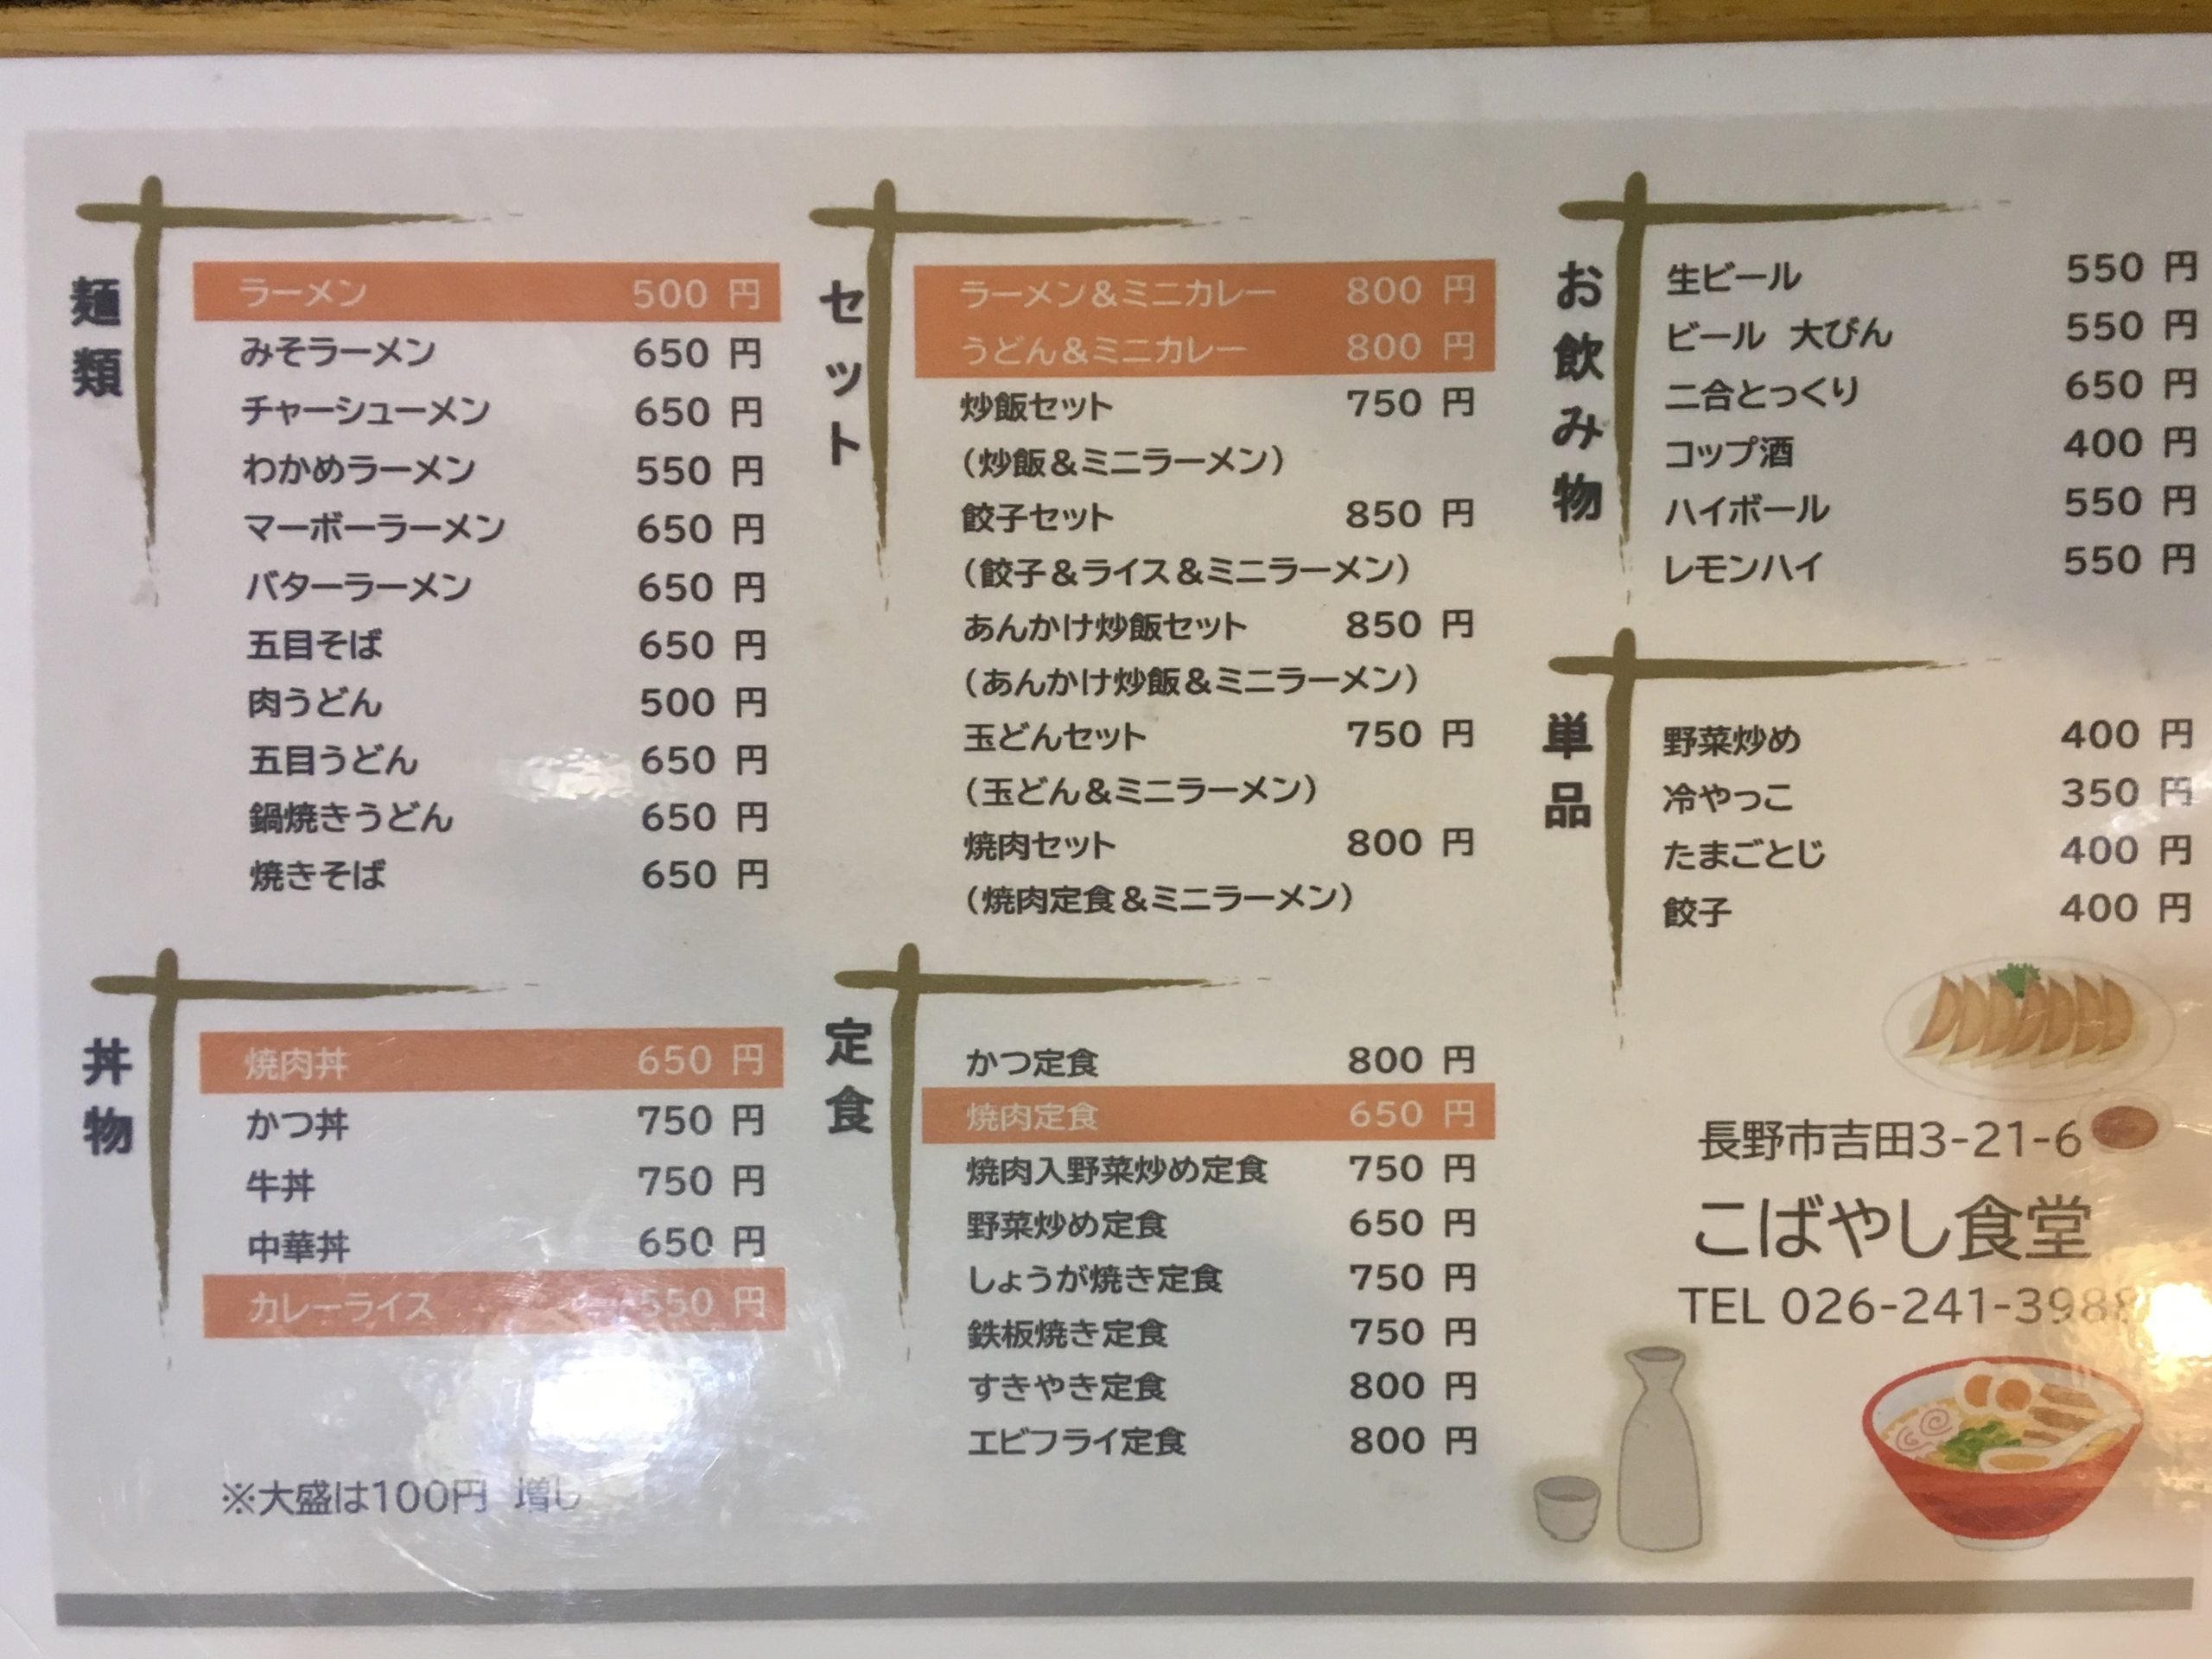 麺類
ラーメン 500 円
みそラーメン 650 円
チャーシューメン 650 円
わかめラーメン 550 円
マーボーラーメン 650 円
バターラーメン 650 円
五目そば 650 円
肉うどん 500 円
五目うどん 650 円
鍋焼きうどん 650 円
焼きそば 650 円
丼物
焼肉丼 650 円
かつ丼 750 円
牛丼 750 円
中華丼 650 円
カレーライス 550 円
※大盛は100円 増し
セット
ラーメン&ミニカレー 800 円
うどん&ミニカレー 800 円
炒飯セット 750 円
(炒飯&ミニラーメン)
餃子セット 850 円
(餃子&ライス&ミニラーメン)
あんかけ炒飯セット 850 円
(あんかけ炒飯&ミニラーメン)
玉どんセット 750 円
(玉どん&ミニラーメン)
焼肉セット 800 円
(焼肉定食&ミニラーメン)
定食
かつ定食 800 円
焼肉定食 650 円
焼肉入野菜炒め定食 750 円
野菜炒め定食 650 円
しょうが焼き定食 750 円
鉄板焼き定食 750 円
すきやき定食 800 円
エビフライ定食 800 円
お飲み物
生ビール 550 円
ビール 大びん 550 円
二合とっくり 650 円
コップ酒 400 円
ハイボール 550 円
レモンハイ 550 円
単品
野菜炒め 400 円
冷やっこ 350 円
たまごとじ 400 円
餃子 400 円
長野市吉田3-21-6
こばやし食堂
TEL 026-241-3988